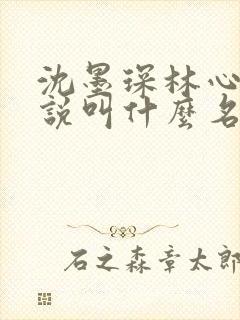 沈墨琛林心
說叫什麼名
石之森章太郎